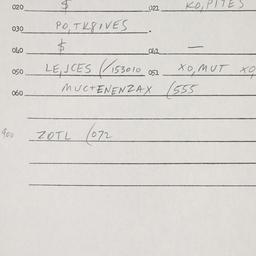 020 $ 021 KO, PITES
030 PO, TK8IVES .
040 $ 041 —
050 LE, JCES (/153010 051 XO, MUT XO,
060 MUCTENENZAX (555
900 ZOTL (072